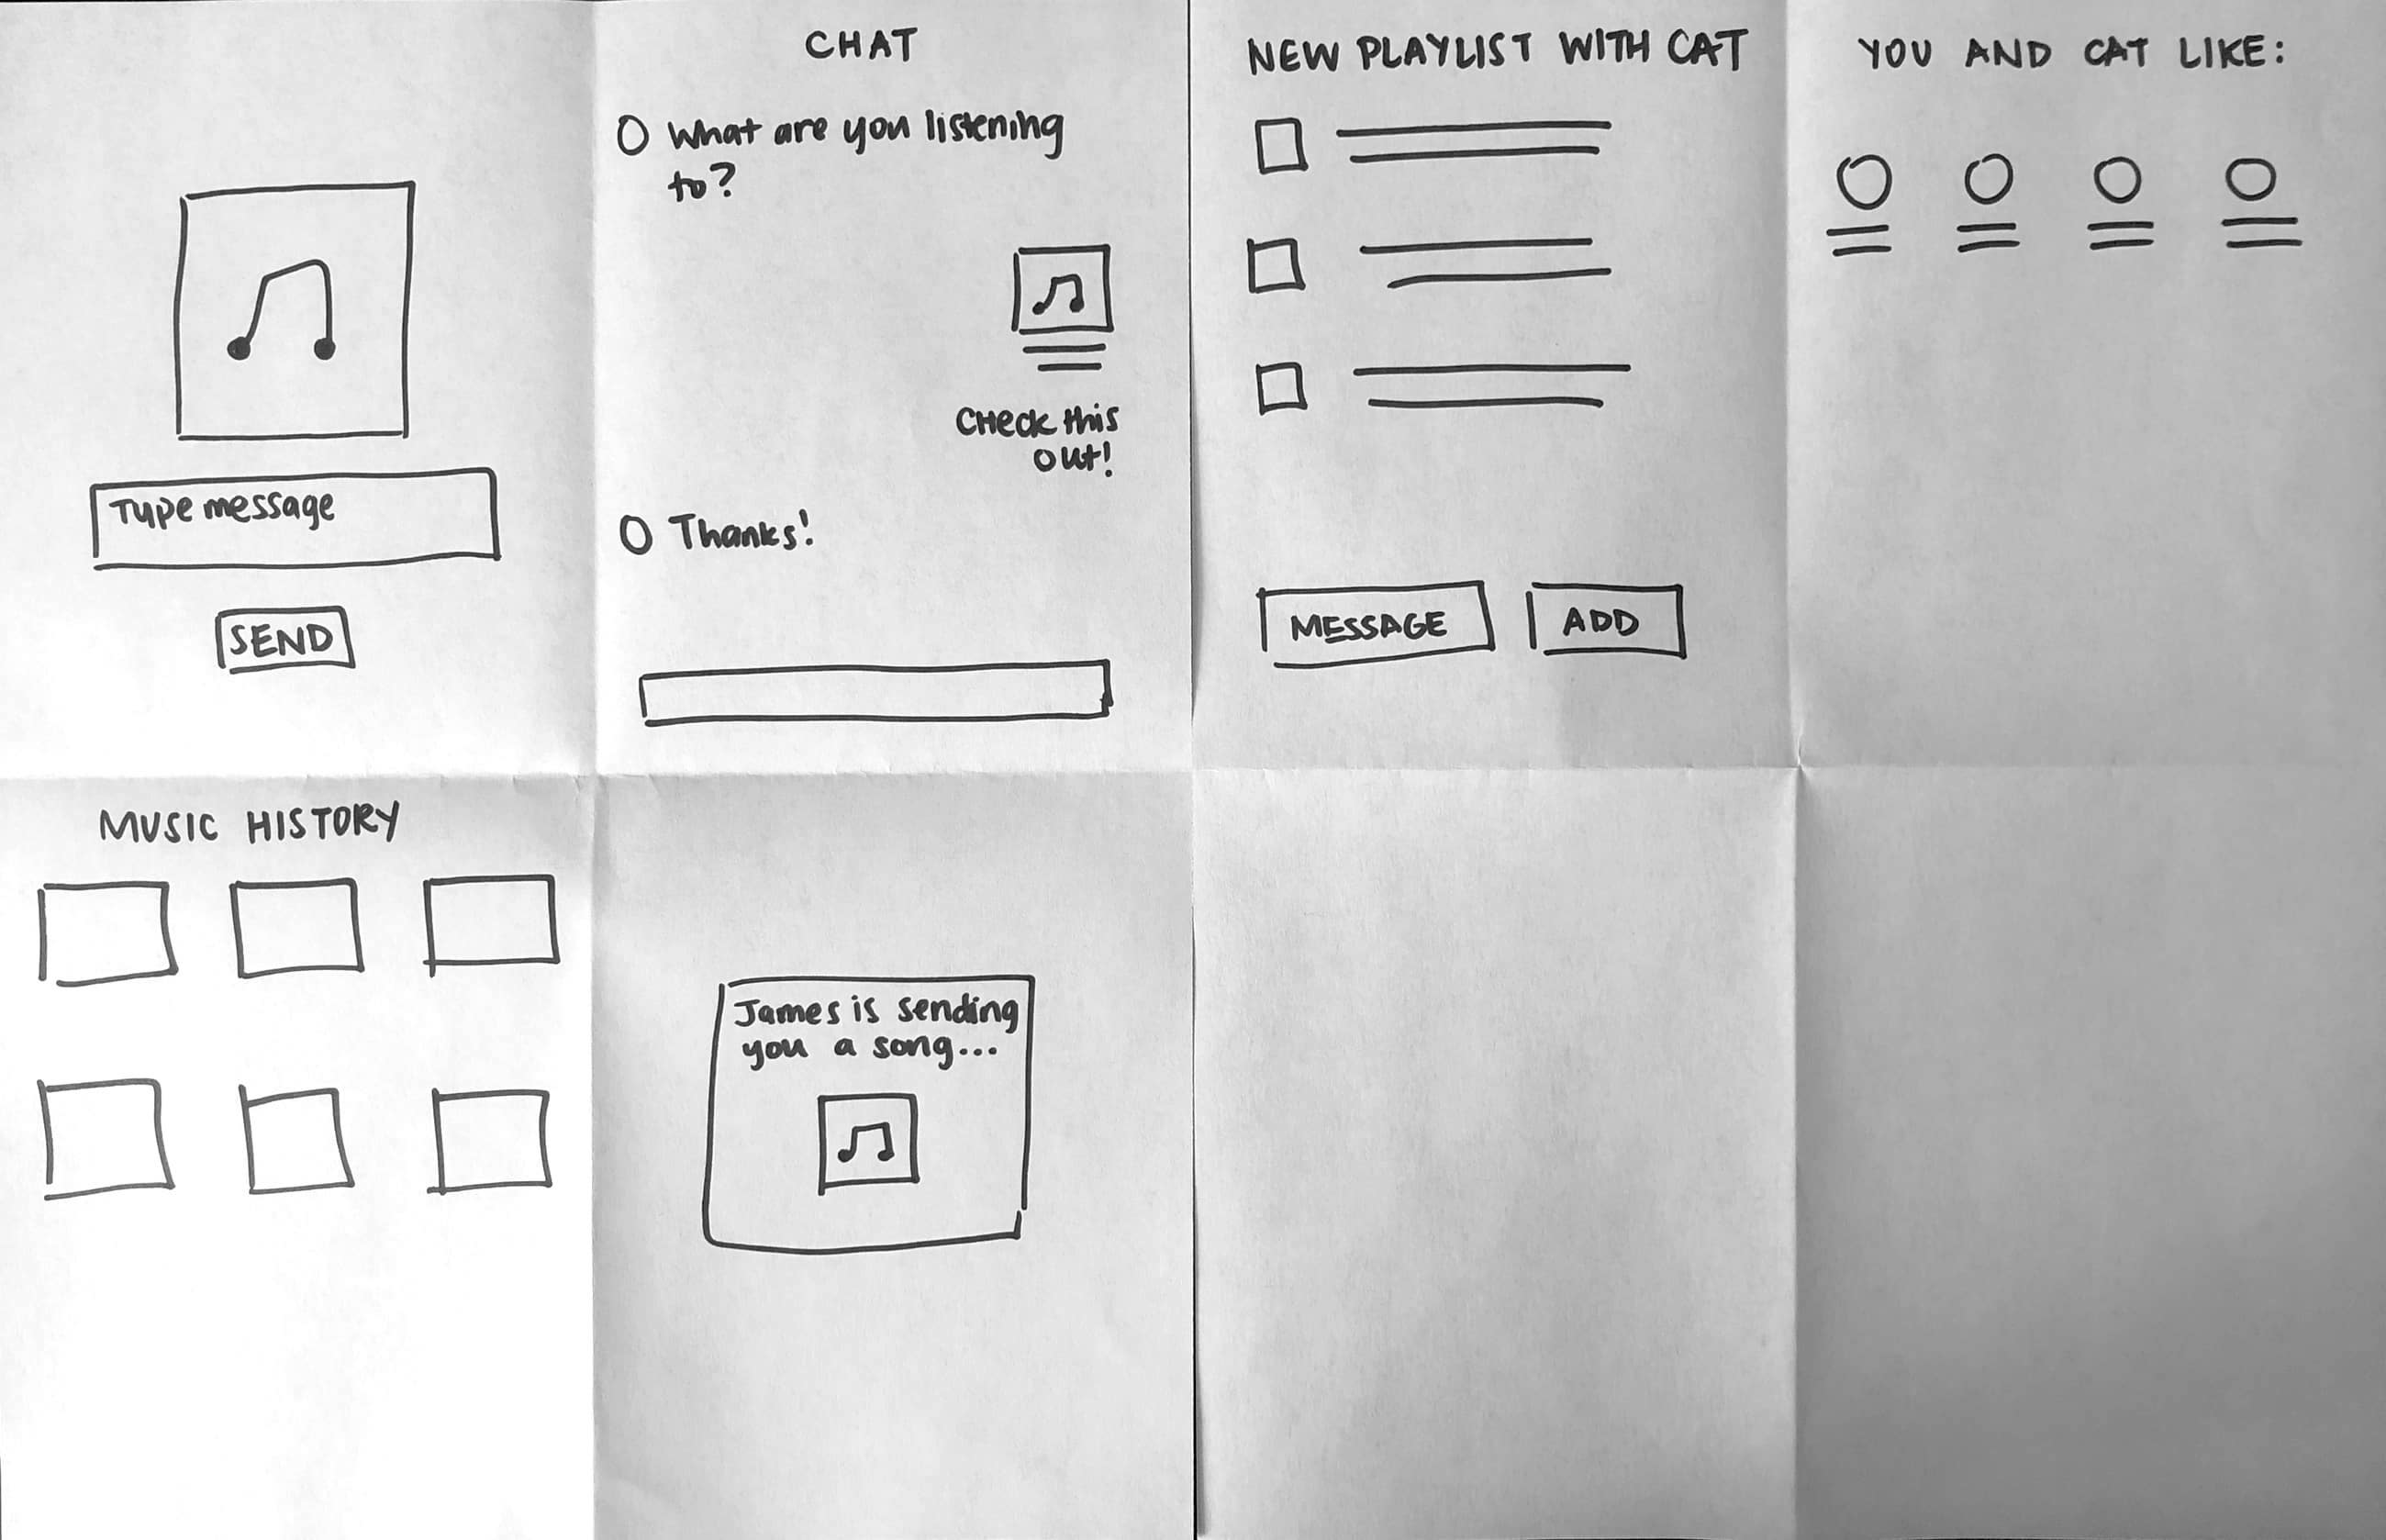 Type message
SEND
CHAT
What are you listening
to?
CHeck this
out!
Thanks!
NEW PLAYLIST WITH CAT
MESSAGE
ADD
YOU AND CAT LIKE:
MUSIC HISTORY
James is sending
you a song...